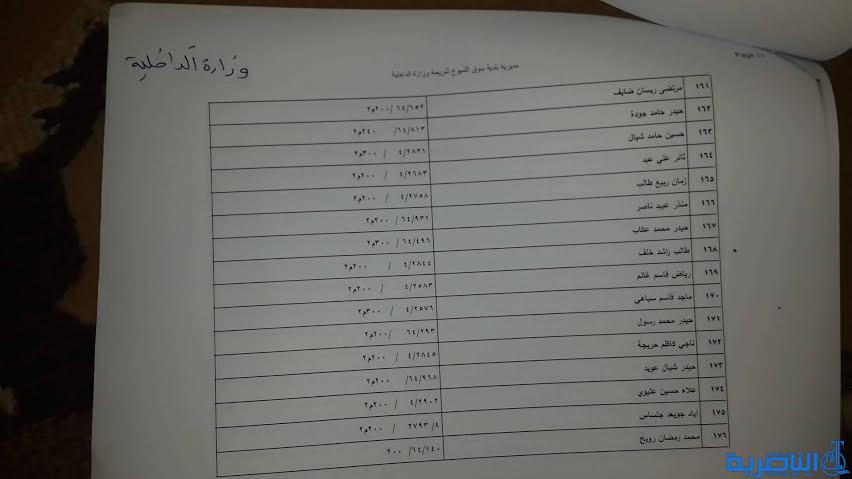 وزارة الداخلية
مديرية بلدية سوق الشيوخ شريحة وزارة الداخلية
Page 11
١٦١ مرتضى ريسان ضايف ٦٤/٦٥٢ /٢٠٠م٢
١٦٢ حيدر حامد جودة ٦٤/٨١٣/ ٢٤٠م٢
١٦٣ حسين حامد شيال ٤/٢٨٣١ / ٣٠٠م٢
١٦٤ ثائر علي عبد ٤/٢٦٨٣ / ٢٠٠م٢
١٦٥ زمان ربيع طالب ٤/٢٧٥٨ / ٢٠٠م٢
١٦٦ منذر عبيد ناصر ٦٤/٩٣١ / ٢٠٠م٢
١٦٧ حيدر محمد عكاب ٦٤/٤٩٦ / ٣٠٠م٢
١٦٨ طالب راشد خلف ٤/٢٨٤٤ / ٢٠٠م٢
١٦٩ رياض قاسم غانم ٤/٢٥٨٣ / ٢٠٠م٢
١٧٠ ماجد قاسم سباهي ٤/٢٥٧٦ / ٣٠٠م٢
١٧١ حيدر محمد رسول ٦٤/٢٩٣ /٢٠٠م٢
١٧٢ ناجي كاظم حريجة ٤/٢٨٤٥ / ٢٠٠م٢
١٧٣ حيدر شيال عويد ٦٤/٩٦٨/ ٢٠٠م٢
١٧٤ علاء حسين عليوي ٤/٢٩٠٢ / ٢٠٠م٢
١٧٥ اياد جويعد جلساس ٤/ ٢٧٩٣ / ٢٠٠م٢
١٧٦ محمد رمضان رويح ٦٤/١٤٠/ ٢٠٠
الناصرية